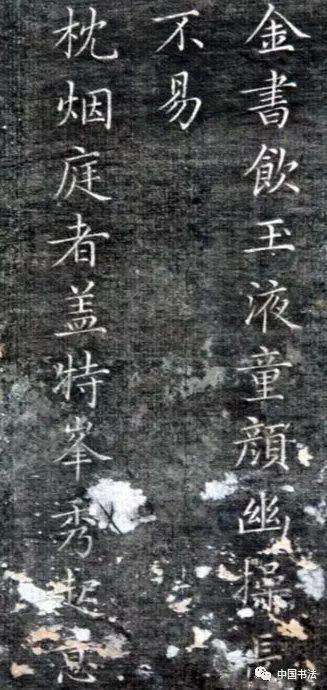 金書飲玉液童顏幽操長
不易
枕烟庭者盖特峯秀起意
中国书法